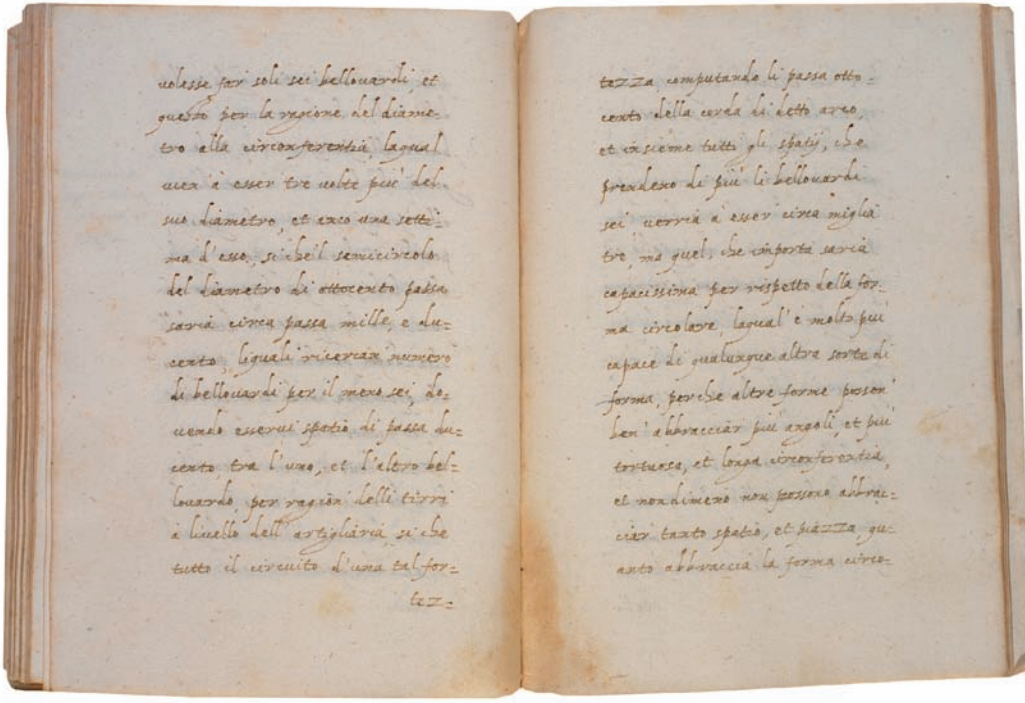 volesse far soli sei bellouardi, et
questo per la ragione del diame=
tro alla circonferentia, laqual
vien à esser tre uolte piu' del
suo diametro, et anco una setti=
ma d'esso, si che'l semicircolo
del diametro di ottocento passa
saria circa passa mille, e du=
cento, liquali ricercan numero
di bellouardi per il meno sei, do=
uendo esserui spatio di passa du=
cento tra l'uno, et l'altro bel=
louardo per ragion delli tirri
à liuello dell'artigliaria, si che
tutto il circuito d'una tal for=
tez=
tezza computando li passa otto=
cento della corda di detto arco,
et insieme tutti gli spatij, che
prendeno di piu' li bellouardi
sei verria à esser circa miglia
tre, ma quel, che importa saria
capacissima per rispetto della for=
ma circolare, laqual' è molto piu
capace di qualunque altra sorte di
forma, perche altre forme posson'
ben' abbracciar piu' angoli, et piu'
tortuosa, et longa circonferentia,
et nondimeno non possono abbrac=
ciar' tanto spatio, et piazza qu=
anto abbraccia la forma circo=